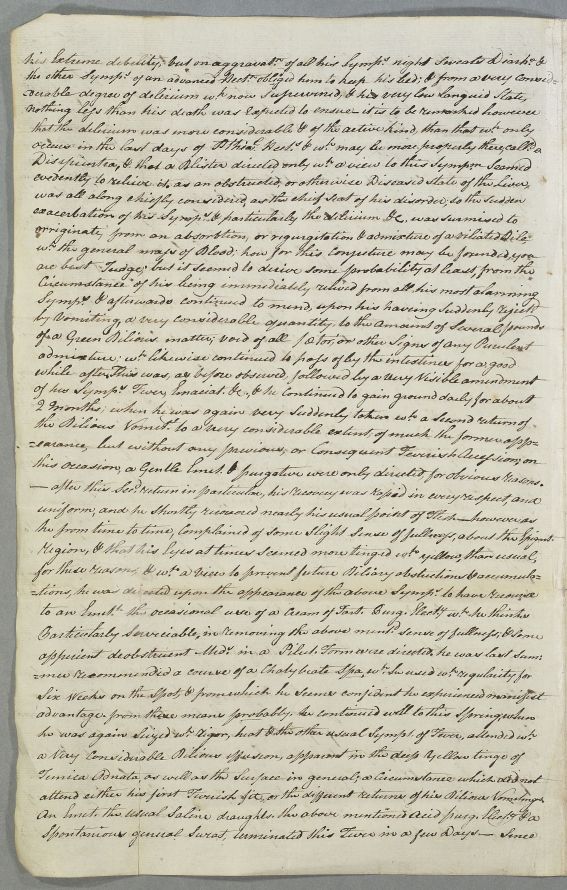 his Extreme debility, but on aggravatn. of all his Sympts. night Sweats Diarha. &
the other Sympts. of an advanced Hect. obliged him to keep his bed; & from a very consid=
=erable degree of delirium wh. now Supervened, & his very low Languid State,
nothing less than his death was expected to ensue it is to be remarked however
that the delirium was more considerable & of the active kind, than that wt. only
occurs in the last days of Hect. & wt. may be more properly there, call'd a
& that a Blister directed only wt. a view to this Sympm. Seemed
evidently to relieve it, as an obstructed, or otherwise Diseased state of the Liver,
was all along chiefly considered, as the chief seat of his disorder, so the Sudden
exacerbation of his Sympts. & particularly the delirium &c, was surmised to
originate from an absorbtion, or regurgitation & admixture of a vitiated Bile
wt. the general mass of Blood; how far this Conjecture may be founded, you
are best Judge; but it seemed to derive some probability at least, from the
Circumstance of his being immediately relieved from all his most alarming
Sympts. & afterwards continued to mend, upon his having Suddenly reject'd
by Vomiting, a very considerable quantity, to the amount of Several pounds
of a Green Bilious matter, void of all foetor, or other Signs of any Purulent
admixture; wt. likewise continued to pass of by the intestines for a good
while after. This was, as before observed, followed by a very Visible amendment
of his Sympts. Fever, Emaciat. &c, & he Continued to gain ground daily, for about
2 Months; when he was again very Suddenly taken wt. a Second return of
the Bilious Vomitg. to a very considerable extent, of much the former app=
=earance, but without any previous, or Consequent Feverish Accession; on
this occasion, a Gentle Emet. & purgative were only directed for obvious reasons.
— after this Secd. return in particular, his recovery was rapid in every respect and
uniform, and he Shortly recovered nearly his usual point of Flesh — however as
he from time to time, Complained of some Slight Sense of fullness, about the Epigast.
region, & that his Eyes at times Seemed more tinged wt. yellow, than usual,
for these reasons, & wt. a view to prevent future Biliary obstructions & accumula=
=tions, he was directed upon the appearance of the above Sympts. to have recourse
to an Emett. the occasional use of a Cream of Tart. Purg. Electy. wt. he thinks
Particularly Serviceable, in removing the above mentd. Sense of fullness, & Some
apperient deobstruent Medn. in a Pilul. Form were directed, he was last Sum=
=mer recommended a course of a Chalybeate Spa, wt. he used wt. regularity for
Six Weeks on the Spot & from which he Seems confident he experienced manifest
advantage from these means probably. he continued well to this Spring when
he was again Seized wt. rigor, heat & the other usual Sympts. of Fever, attended wt.
a Very Considerable Bilious effusion, apparent in the deep Yellow tinge of
Tunica Adnata, as well as the Surface in general; a Circumstance which did not
attend either his first Feverish fit, or the different returns of his Bilious Vomitings
An Emet. the usual Saline draughts. the above mentioned Acid purg. Electy. & a
Spontanious general Sweat, terminated this Fever in a few Days — Since